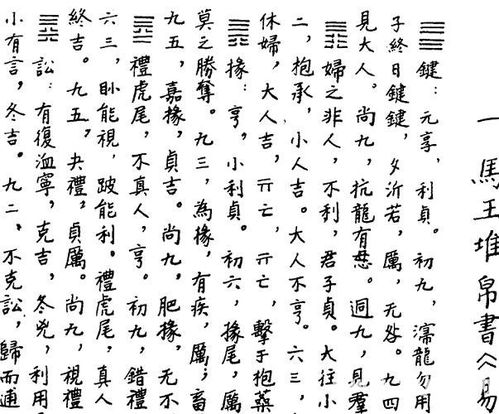 一 馬王堆帛書《易
䷀ 鍵：元享，利貞。初九，龍勿用
子終日鍵鍵，夕沂若，厲，无咎。九四
見大人。尚九，抗龍有。迵九，見羣
䷋ 婦之非人，不利，君子貞。大往小
二，抱承，小人吉。大人不亨。六三，
休婦，大人吉，亓亡，亓亡，擊于抱
䷠ 掾：亨，小利貞。初六，掾尾，厲
莫之勝奪。九三，為掾，有疾，厲；畜
九五，嘉掾，貞吉。尚九，肥掾，无不
䷉ 禮虎尾，不真人，亨。初九，錯禮
六三，眇能視，跛能利。禮虎尾，真人
終吉。九五，夬禮，貞厲。尚九，視禮
䷅ 訟：有復洫寧，克吉，冬兇，利用
小有言，冬吉。九二，不克訟，歸而逋